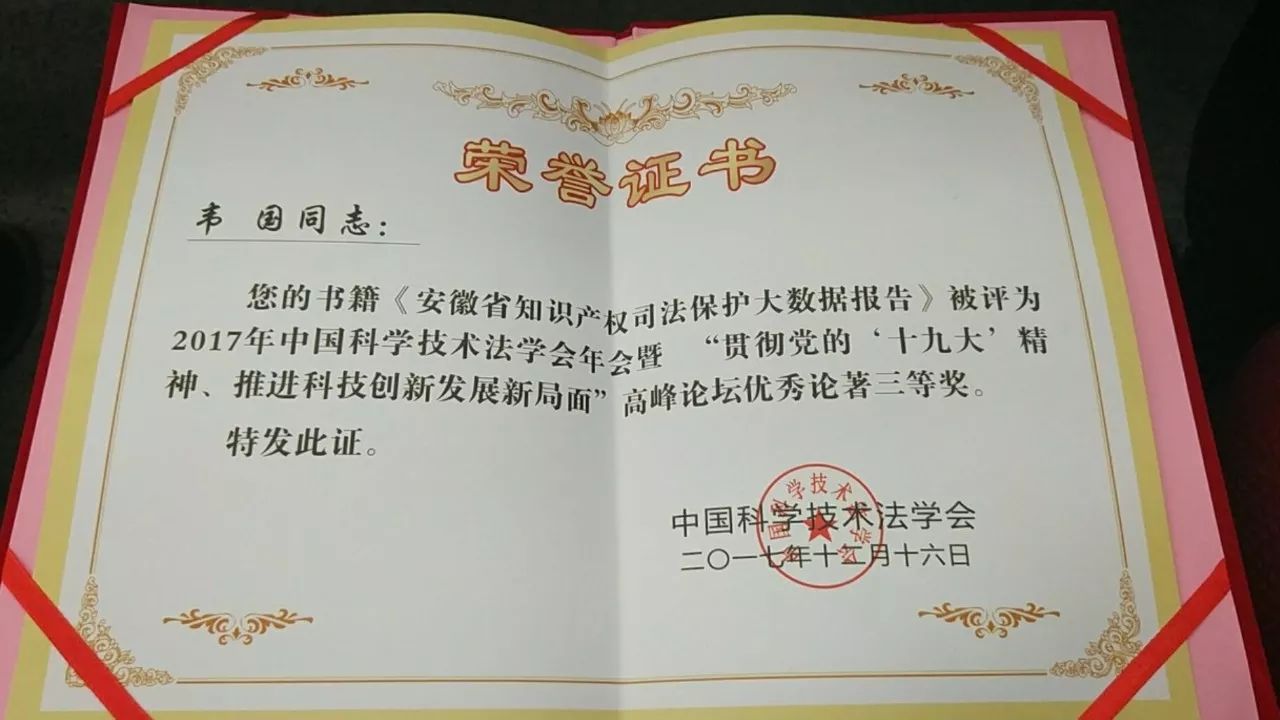 荣誉证书
韦 国同志：
您的书籍《安徽省知识产权司法保护大数据报告》被评为
2017年中国科学技术法学会年会暨 “贯彻党的‘十九大’精
神、推进科技创新发展新局面”高峰论坛优秀论著三等奖。
特发此证。
中国科学技术法学会
二〇一七年十二月十六日
中国科学技术法学会